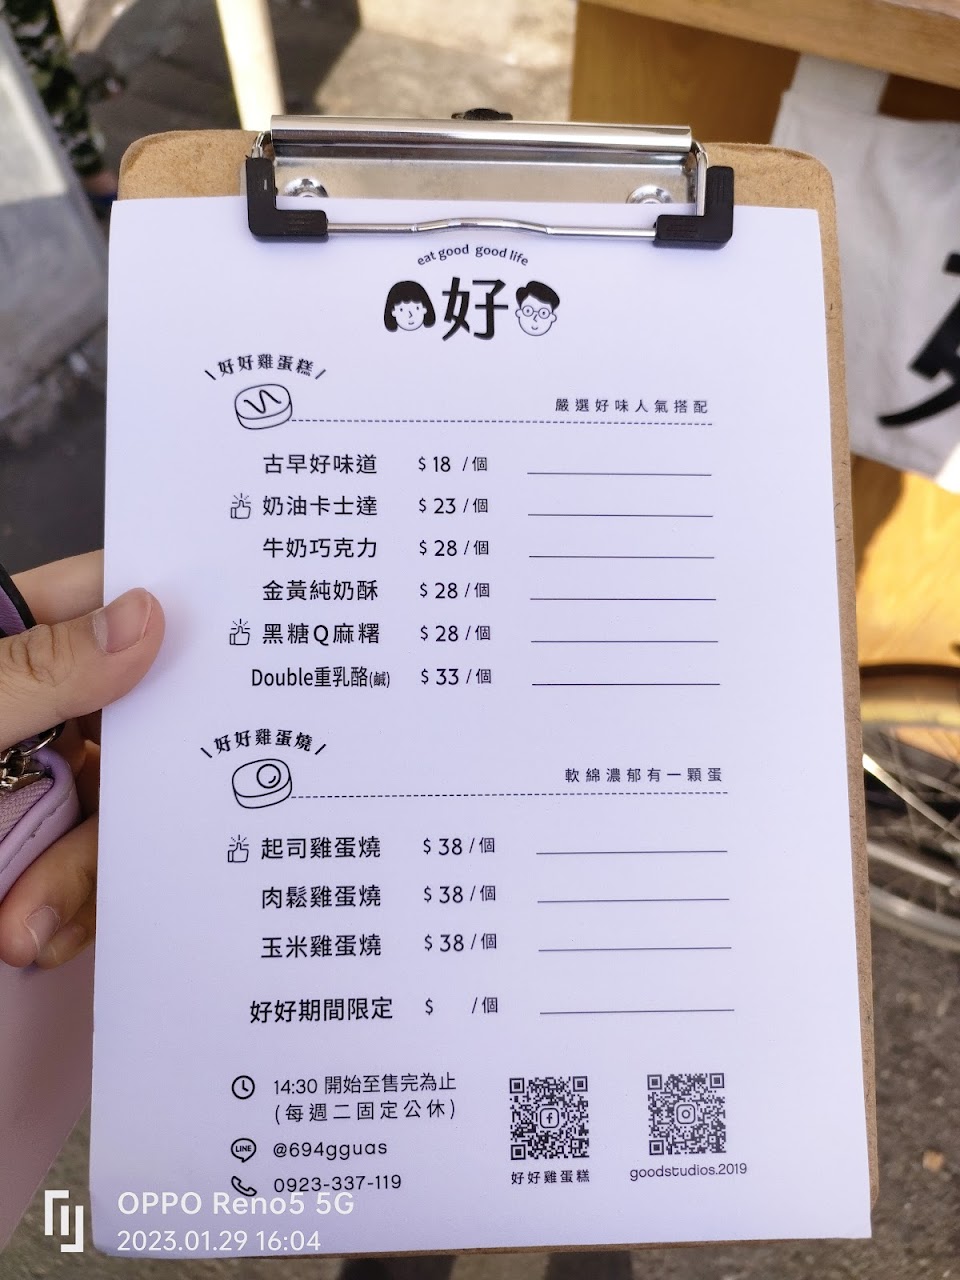 eat good good life
好
好好雞蛋糕
嚴選好味人氣搭配
古早好味道 $ 18 / 個
奶油卡士達 $ 23 / 個
牛奶巧克力 $ 28 / 個
金黃純奶酥 $ 28 / 個
黑糖Q麻糬 $ 28 / 個
Double重乳酪(鹹) $ 33 / 個
好好雞蛋燒
軟綿濃郁有一顆蛋
起司雞蛋燒 $ 38 / 個
肉鬆雞蛋燒 $ 38 / 個
玉米雞蛋燒 $ 38 / 個
好好期間限定 $ / 個
14:30 開始至售完為止
(每週二固定公休)
LINE @694gguas
0923-337-119
好好雞蛋糕
goodstudios.2019
OPPO Reno5 5G
2023.01.29 16:04